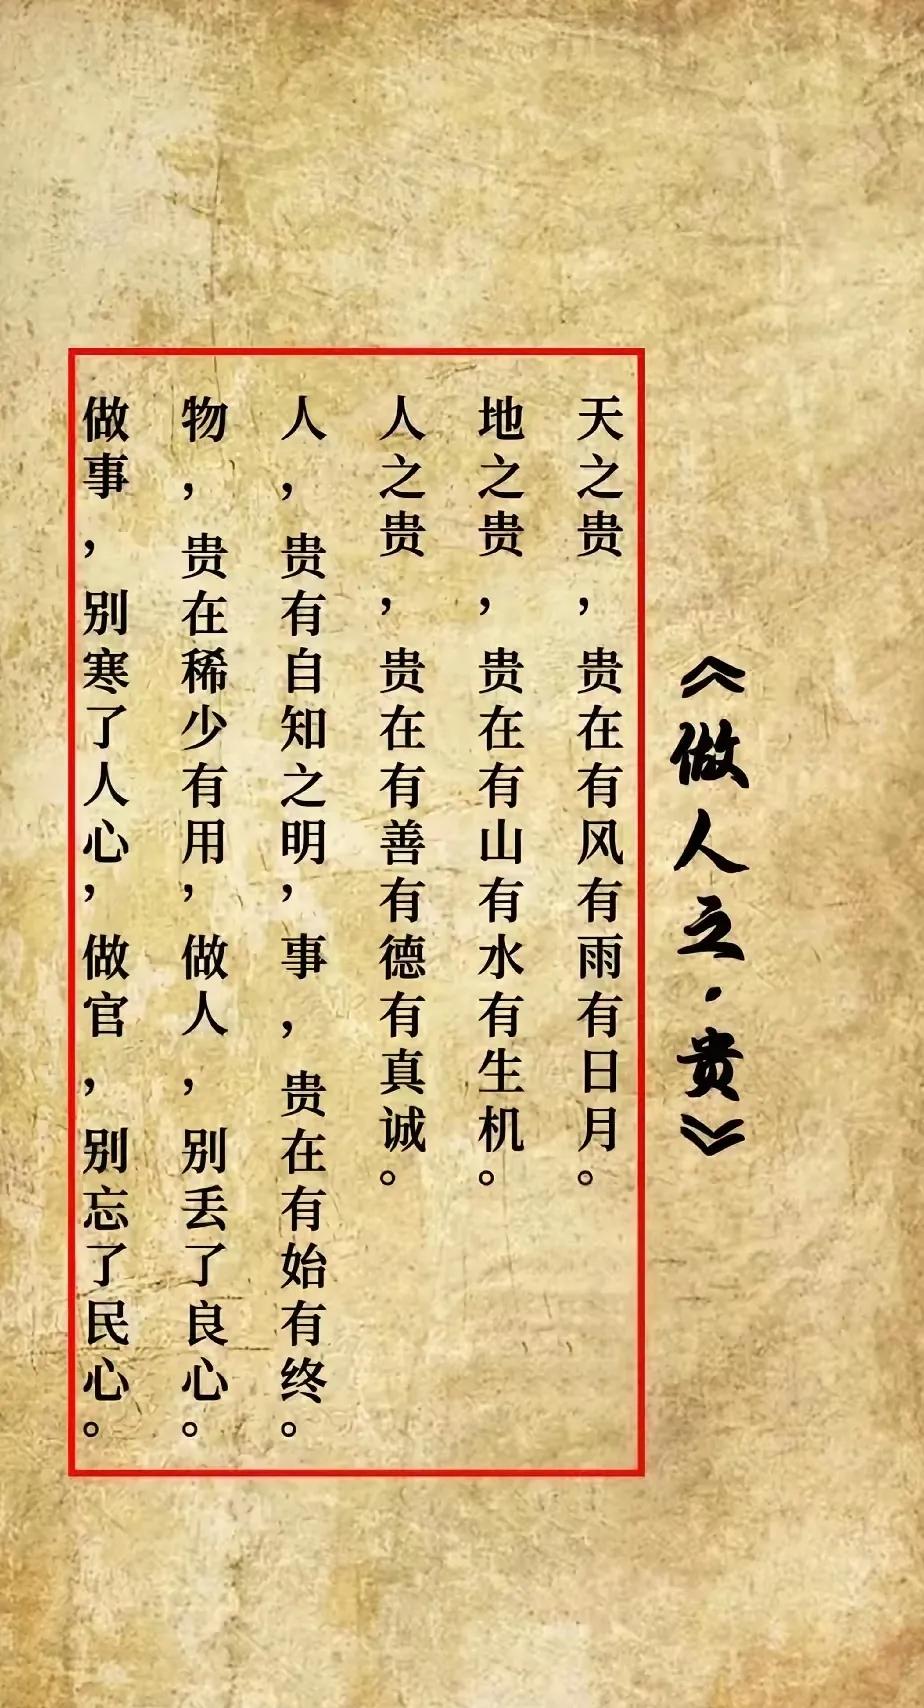 《做人之·贵》
天之贵，贵在有风有雨有日月。
地之贵，贵在有山有水有生机。
人之贵，贵在有善有德有真诚。
人，贵有自知之明，事，贵在有始有终。
物，贵在稀少有用，做人，别丢了良心。
做事，别寒了人心，做官，别忘了民心。